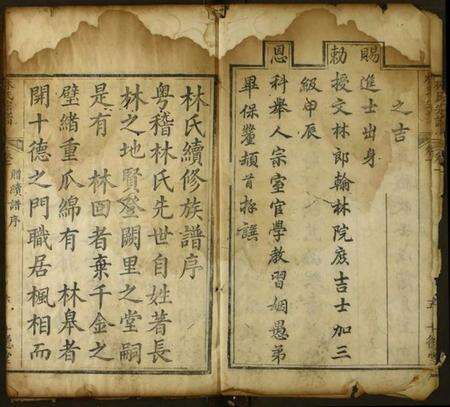 之吉
賜進士出身
勅授文林郎翰林院庶吉士加三
級甲辰
恩科舉人宗室官學教習姻愚弟
畢保釐頓首拜譔
林氏續修族譜序
粵稽林氏先世自姓著長
林之地賢登闕里之堂嗣
是有 林回者棄千金之
璧緒重瓜綿有 林皋者
開十德之門職居楓相而
贈續譜序